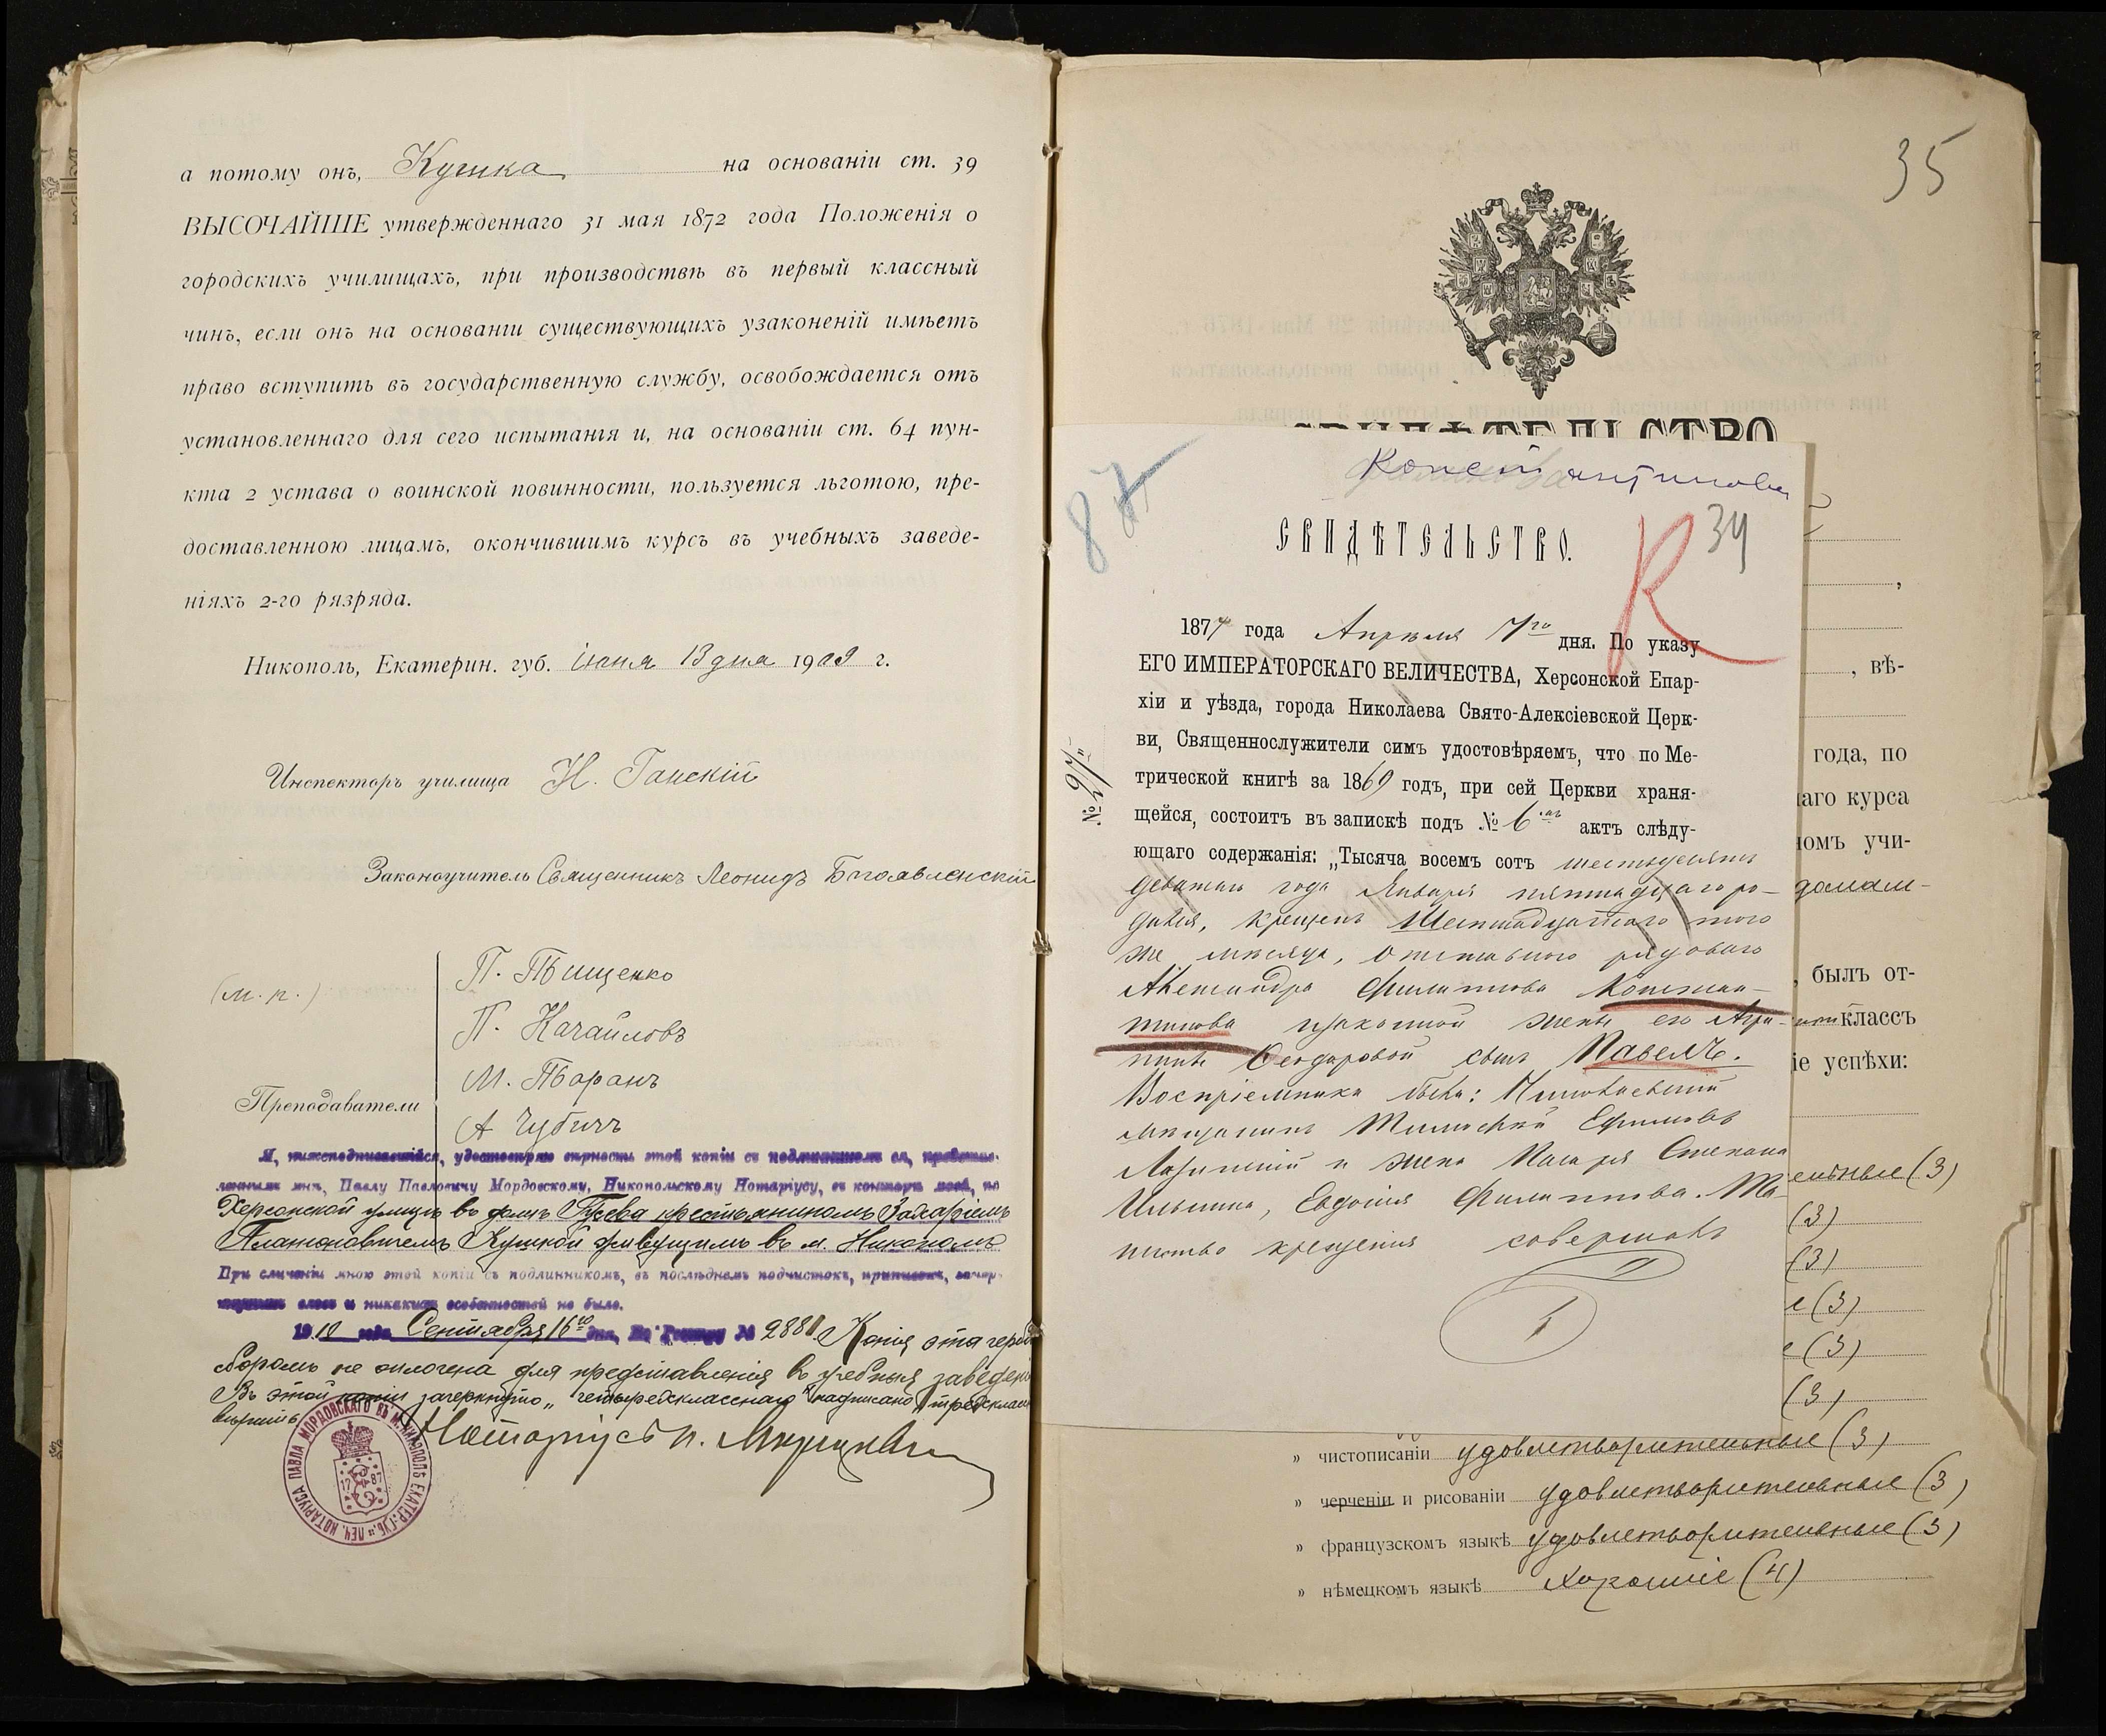 а потому онъ, Кушка на основаніи ст. 39
ВЫСОЧАЙШЕ утвержденнаго 31 мая 1872 года Положенія о
городскихъ училищахъ, при производствѣ въ первый классный
чинъ, если онъ на основаніи существующихъ узаконеній имѣетъ
право вступить въ государственную службу, освобождается отъ
установленнаго для сего испытанія и, на основаніи ст. 64 пун-
кта 2 устава о воинской повинности, пользуется льготою, пре-
доставленною лицамъ, окончившимъ курсъ въ учебныхъ заведе-
ніяхъ 2-го рязряда.
Никополь, Екатерин. губ. іюня 13 дня 1909 г.
Инспекторъ училища Н. Ганскій
Законоучитель Священникъ Леонидъ Богоявленскій
(м. п.)
Преподаватели
П. Пищенко
П. Качайловъ
М. Баранъ
А Чубичъ
Я, нижеподписавшійся, удостовѣряю вѣрность этой копіи съ подлинникомъ ея, представ-
леннымъ мнѣ, Павлу Павловичу Мордовскому, Никопольскому Нотаріусу, въ конторѣ моей, по
Херсонской улицѣ въ домѣ Гусева крестьяниномъ Захаріемъ
Платоновичемъ Кушкой живущимъ въ м. Никополѣ
При сличеніи мною этой копіи съ подлинникомъ, въ послѣднемъ подчистокъ, приписокъ, зачер-
кнутыхъ словъ и никакихъ особенностей не было.
1910 года Сентября 16го дня, По Реестру № 2881. Копія эта герб
сборомъ не оплочена для представленія въ учебныя заведен
Въ этой копіи зачеркнуто „четырехкласснаго надписано „трехкласс
вѣрить
Нотаріусъ П. Мордовскій
ПЕЧ. НОТАРІУСА ПАВЛА МОРДОВСКАГО ВЪ М. НИКОПОЛѢ ЕКАТЕР. ГУБ.
17 87
35
СВИДѢТЕЛЬСТВО
87
Константинова
СВИДѢТЕЛЬСТВО.
34
К
№ 27
1877 года Апрѣля 7го дня. По указу
ЕГО ИМПЕРАТОРСКАГО ВЕЛИЧЕСТВА, Херсонской Епар-
хіи и уѣзда, города Николаева Свято-Алексіевской Церк-
ви, Священнослужители симъ удостовѣряемъ, что по Ме-
трической книгѣ за 1869 годъ, при сей Церкви храня-
щейся, состоитъ въ запискѣ подъ № 6мъ актъ слѣду-
ющаго содержанія: „Тысяча восемъ сотъ шестьдесятъ
девятаго года Января пятнадцатаго ро-
дился, крещенъ Шестнадцатаго того
же мѣсяца, Отставного рядоваго
Александра Филиппова Констан-
тинова изаконной жены его Агри-
пины Ѳеодоровой сынъ Павелъ.
Воспріемники были:
мѣщанинъ Тимофей Ефимовъ
и жена Писаря Степана
Ильина, Евдокія Филиппова. Та-
инство крещенія совершалъ
, вѣ-
года, по
наго курса
номъ учи-
, былъ от-
классъ
іе успѣхи:
ельные (3)
(3)
(3)
е (3)
е (3)
(3)
» чистописаніи удовлетворительные (3)
» черченіи и рисованіи удовлетворительные (3)
» французскомъ языкѣ удовлетворительные (3)
» нѣмецкомъ языкѣ хорошіе (4)